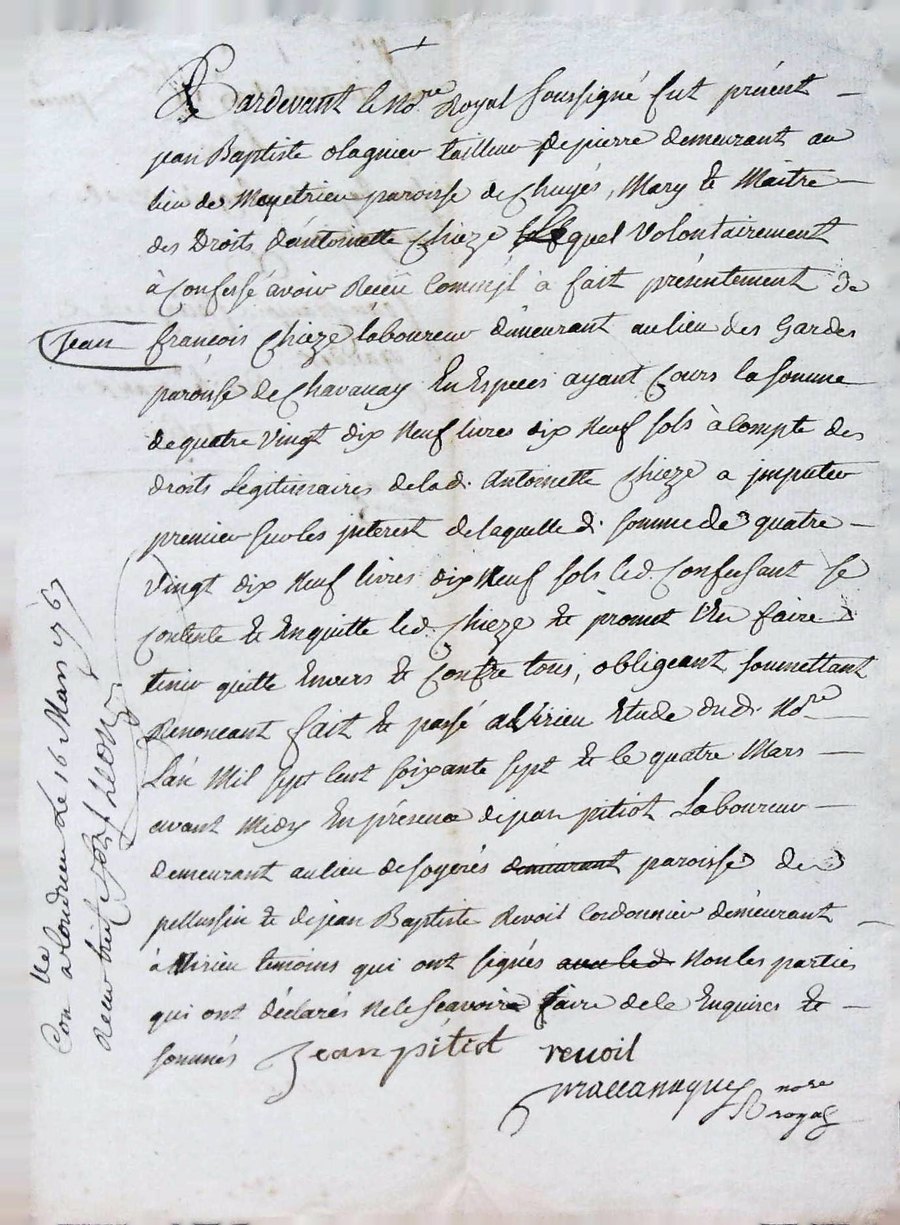 Pardevant le No.re Royal soussigné fut présent
jean Baptiste olagnier tailleur de pierre demeurant au
lieu de paroisse de Chuyés, Mary & Maitre
des Droits d'antoinette Chieze lequel volontairement
à Confessé avoir Receu Comm'jl à fait présentement de
jean françois Chieze laboureur demeurant au lieu des Gardes
paroisse de Chavanay En Especes ayant Cours la somme
de quatre vingt dix Neuf livres dix Neuf sols à Compte des
droits Légitimaires de lad. Antoinette Chieze a jmputer
premier sur les jnterest de laquelle d. somme de quatre
vingt dix Neuf livres dix Neuf sols led. Confessant se
Contente & En quitte led. Chieze & promet l'En faire
tenir quitte Envers & Contre tous, obligeant soumettant
Renonceant fait & passé a Virieu Etude dud. No.re
L'an Mil sept Cent soixante sept & le quatre Mars
avant Midy En présence de jean pitiot Laboureur
demeurant au lieu de soyeres demeurant paroisse de
pellussin & de jean Baptiste Revoil Cordonnier demeurant
à Virieu temoins qui ont signés avec led. Non les parties
qui ont déclarés Ne le sçavoir faire de le Enquises &
sommés Jean pitiot revoil
nore
royal
Con.lle a Condrieu Le 16 Mars 1767
Receu